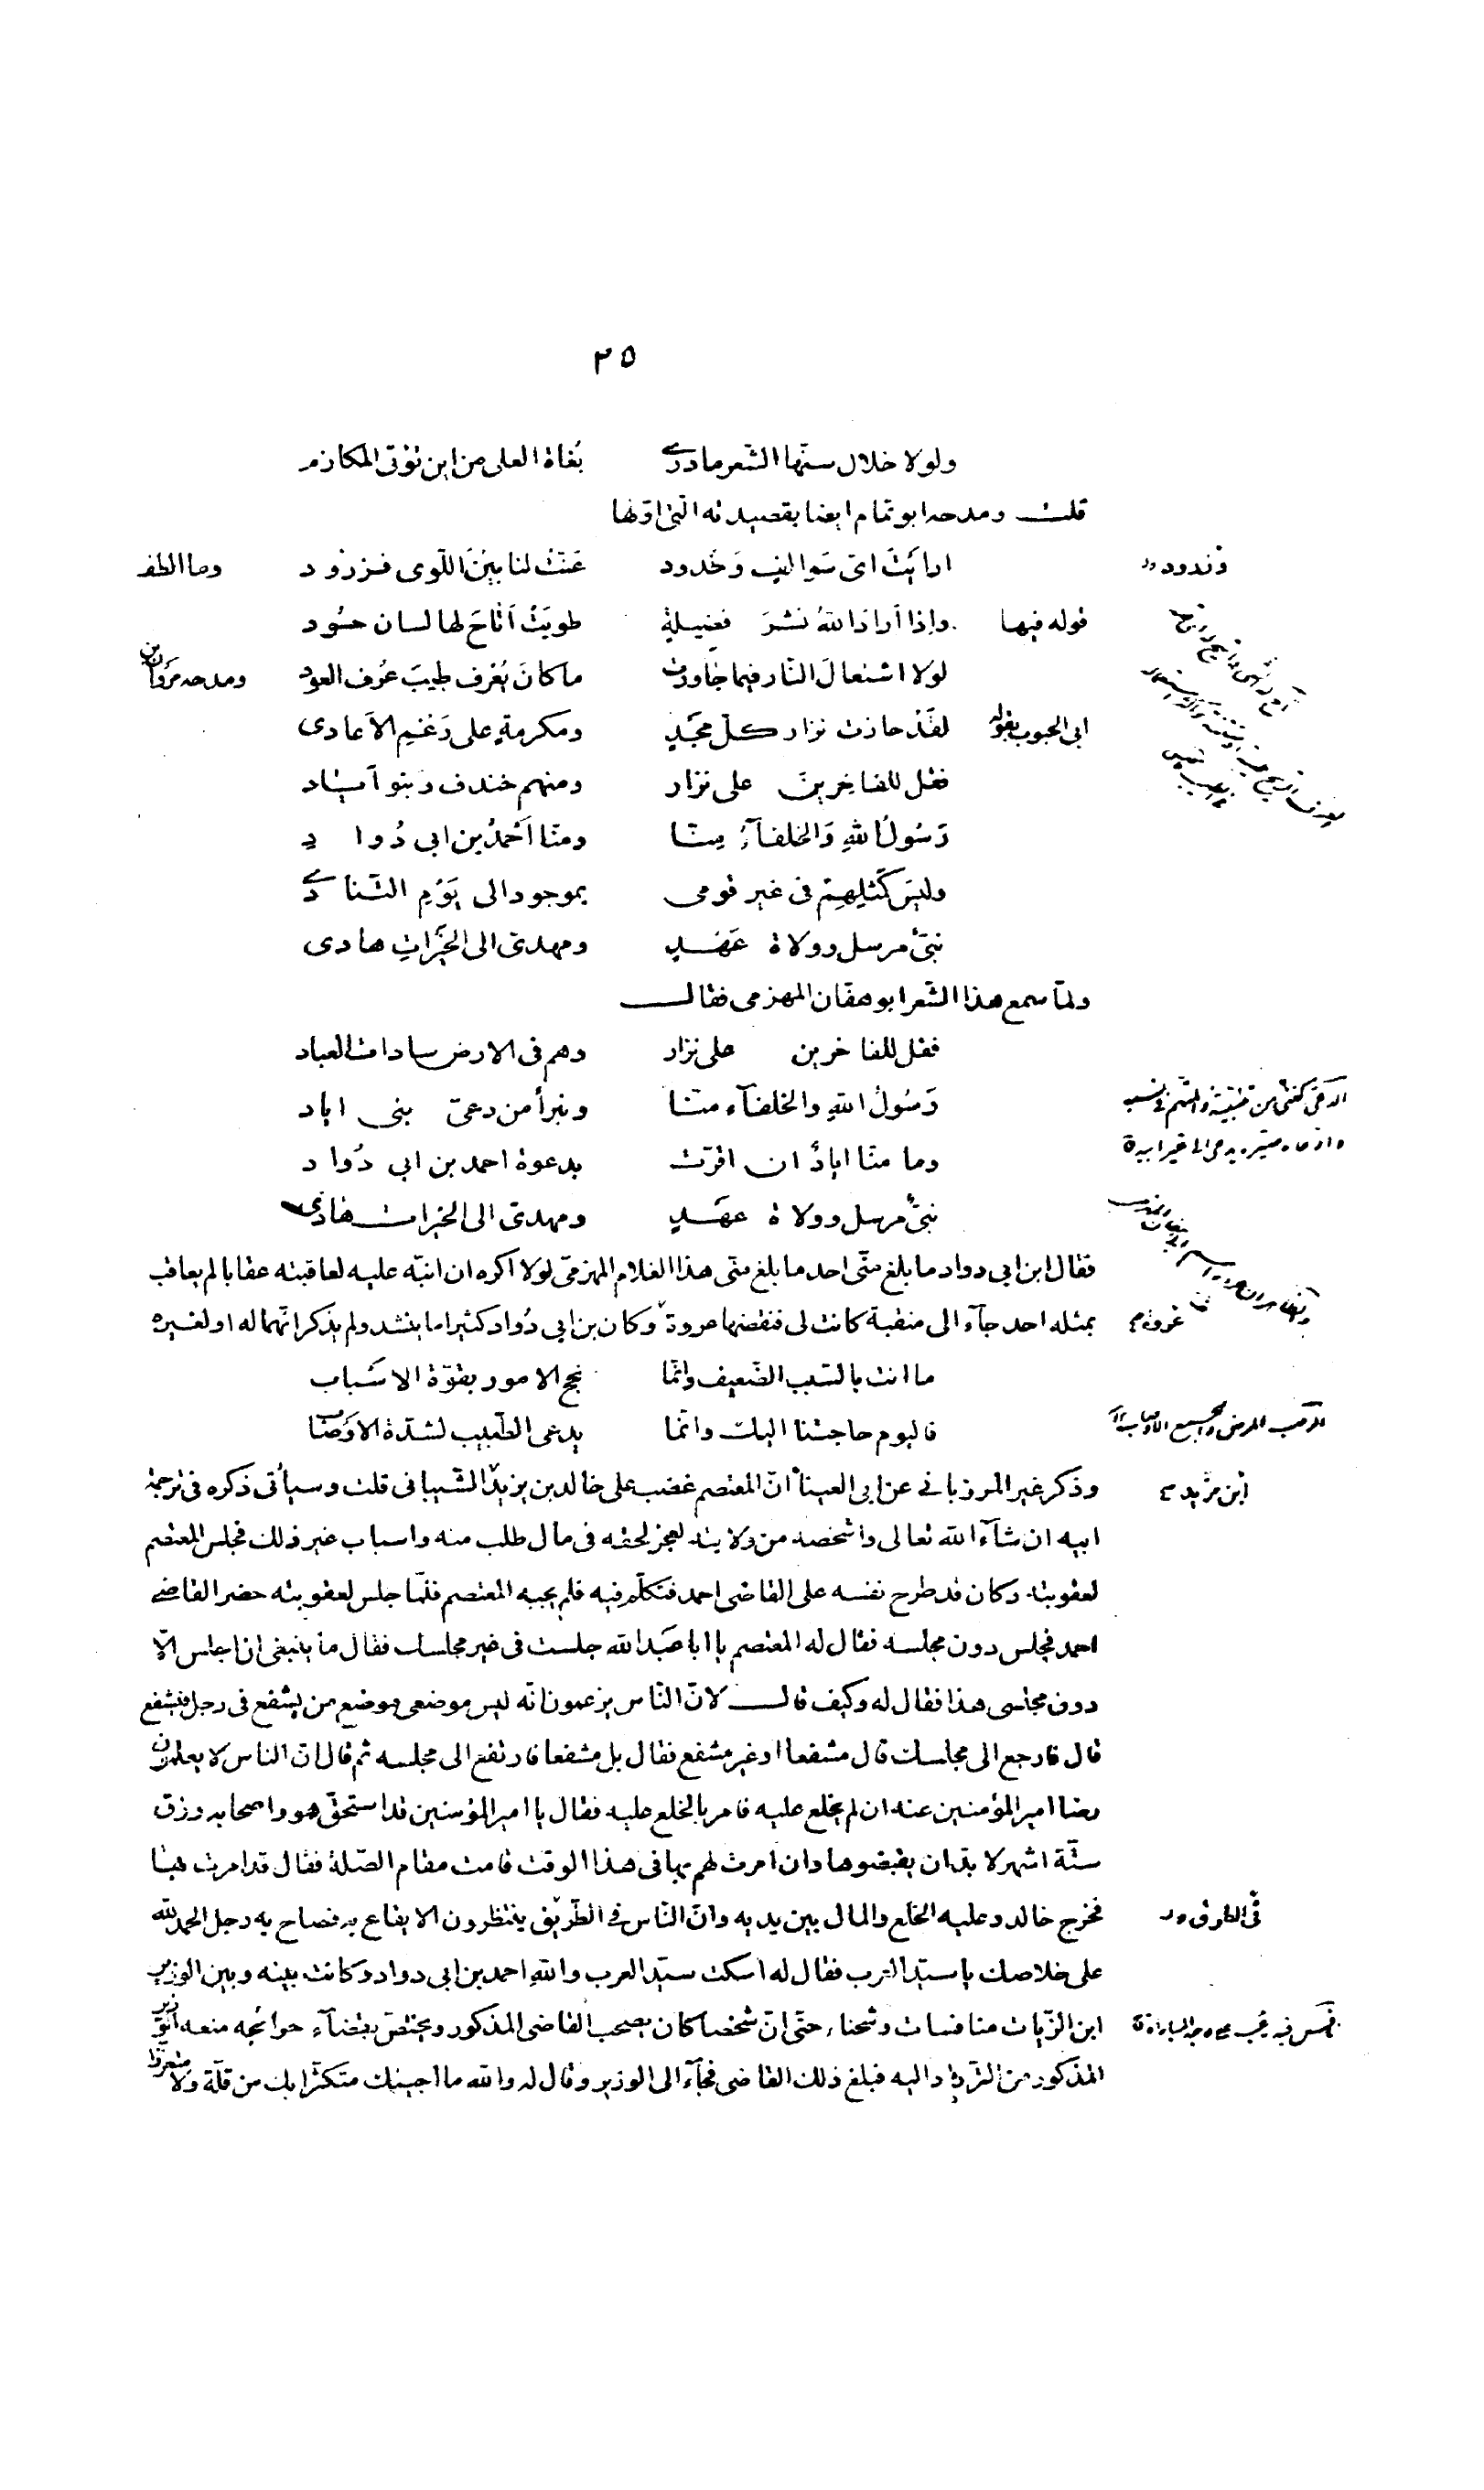 ٢٥
ولولا خلال سنّها الشّعر مادرى بُغاة العلى من اين تؤتى المكارم
قلت ومدحه ابو تمام ايضا بقصيدته التى اوّلها
وزرود
ارأَيتَ اىّ سَوالفٍ وَخُدود عَنّت لنا بَيْنَ اللّوى فزرُود وما الطف
قوله فيها واِذا اَرادَ اللهُ نشرَ فضيلةٍ طويَتْ اَتاحَ لها لسان حسُود
لولا اشتعالَ النّار فيما جاورت ما كانَ يُعْرف طيبَ عُرف العود ومدحه مروان بن
ابى الجنوب بقوله لقَدْ حازت نزار كلّ مَجْدٍ ومكرمةٍ على رَغمِ الاَعادى
فقل للفاخِرينَ على نزار ومنهم خندف وبنو اَياد
رَسُولُ اللهِ وَالخلفآءُ مِنّا ومنّا اَحْمدُ بن ابى دُوادِ
وليسَ كَمثلِهِمْ فى غير قومى بموجود الى يَوْمِ التّنادى
نبىٌّ مرسل وولاة عَهْدٍ ومهدىّ الى الخَيْراتِ هادى
ولمّا سمع هذا الشّعر ابو هفّان المهزمى فقال
فقل للفاخرين على نزار وهم فى الارض سادات العباد
رَسُولُ اللهِ والخلفآء منّا ونبرأ من دعىّ بنى اياد
وما منّا ايادٌ ان اقرّت بدعوة احمد بن ابى دُواد
نبىٌّ مرسل وولاة عهَدٍ ومهدىّ الى الخيرات هادى
فقال ابن ابى دواد ما بلغ منّى احد ما بلغ منّى هذا الغلام المهزمىّ لولا اكره ان انبّه عليه لعاقبته عقابا لم يعاقب
بمثله احد جآء الى منقبة كانت لى فنقضها عروة عروة وكان بن ابى دُواد كثيرا ما ينشد ولم يذكر انّهما له او لغيره
ما انت بالسّبب الضّعيف وانّما نجح الامور بقوّة الاسْباب
فاليوم حاجتنا اليك وانّما يدعى الطّبيب لشدّة الاَوصاب
وذكر غير المرزبانى عن ابى العينآ انّ المعتصم غضب على خالد بن يزيد الشّيبانى قلت وسيأتى ذكره فى ترجمة
ابن مزيد
ابيه ان شآء الله تعالى واشخصه من ولايته لعجز لحقه فى مال طلب منه واسباب غير ذلك فجلس المعتصم
لعقوبته وكان قد طرح نفسه على القاضى احمد فتكلّم فيه فلم يجبه المعتصم فلمّا جلس لعقوبته حضر القاضى
احمد فجلس دون مجلسه فقال له المعتصم يا ابا عبد الله جلست فى غير مجلسك فقال ما ينبغى ان اجلس الّا
دون مجلسى هذا فقال له وكيف قال لانّ النّاس يزعمون انّه ليس موضعى موضع من يشفع فى رجل فيشفع
قال فارجع الى مجلسك قال مشفعا او غير مشفع فقال بل مشفعا فارتفع الى مجلسه ثم قال ان الناس لا يعلمون
رضا امير المؤمنين عنه ان لم يخلع عليه فامر بالخلع عليه فقال يا امير المؤمنين قد استحقّ هو واصحابه رزق
ستّة اشهر لا بدّ ان يقبضوها وان امرت لهم بها فى هذا الوقت قامت مقام الصّلة فقال قد امرت بها
فخرج خالد وعليه الخلع والمال بين يديه وانّ النّاس فى الطّريق ينتظرون الايقاع به فصاح به رجل الحمد لله
فى الطرق
على خلاصك يا سيّد العرب فقال له اسكت سيّد العرب والله احمد بن ابى دواد وكانت بينه وبين الوزير
ابن الزّيات منافسات وشحناء حتّى انّ شخصا كان يصحب القاضى المذكور ويختصّ بقضآء حوائجه منعه الوزير
المذكور من التّرداد اليه فبلغ ذلك القاضى فجآء الى الوزير وقال له والله ما اجيئك متكثّرا بك من قلّة ولا متعزّزا